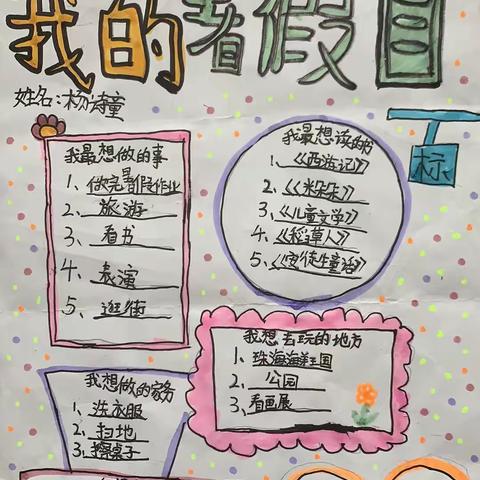 我的暑假目
标
姓名:杨诗童
我最想做的事
1、做完暑假作业
2、旅游
3、看书
4、表演
5、逛街
我最想读的书
1、《西游记》
2、《米朵朵》
3、《儿童文学》
4、《稻草人》
5、《安徒生童话》
我想去玩的地方
1、珠海海洋王国
2、公园
3、看画展
我想做的家务
1、洗衣服
2、扫地
3、擦桌子